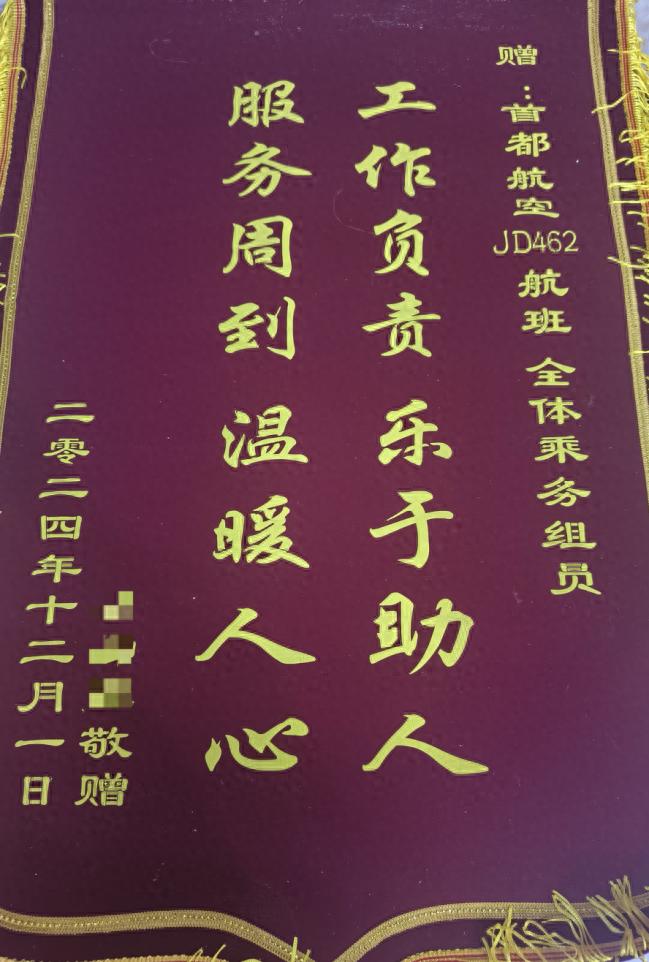 赠：首都航空JD462航班 全体乘务组员
工作负责 乐于助人
服务周到 温暖人心
敬赠
二零二四年十二月一日